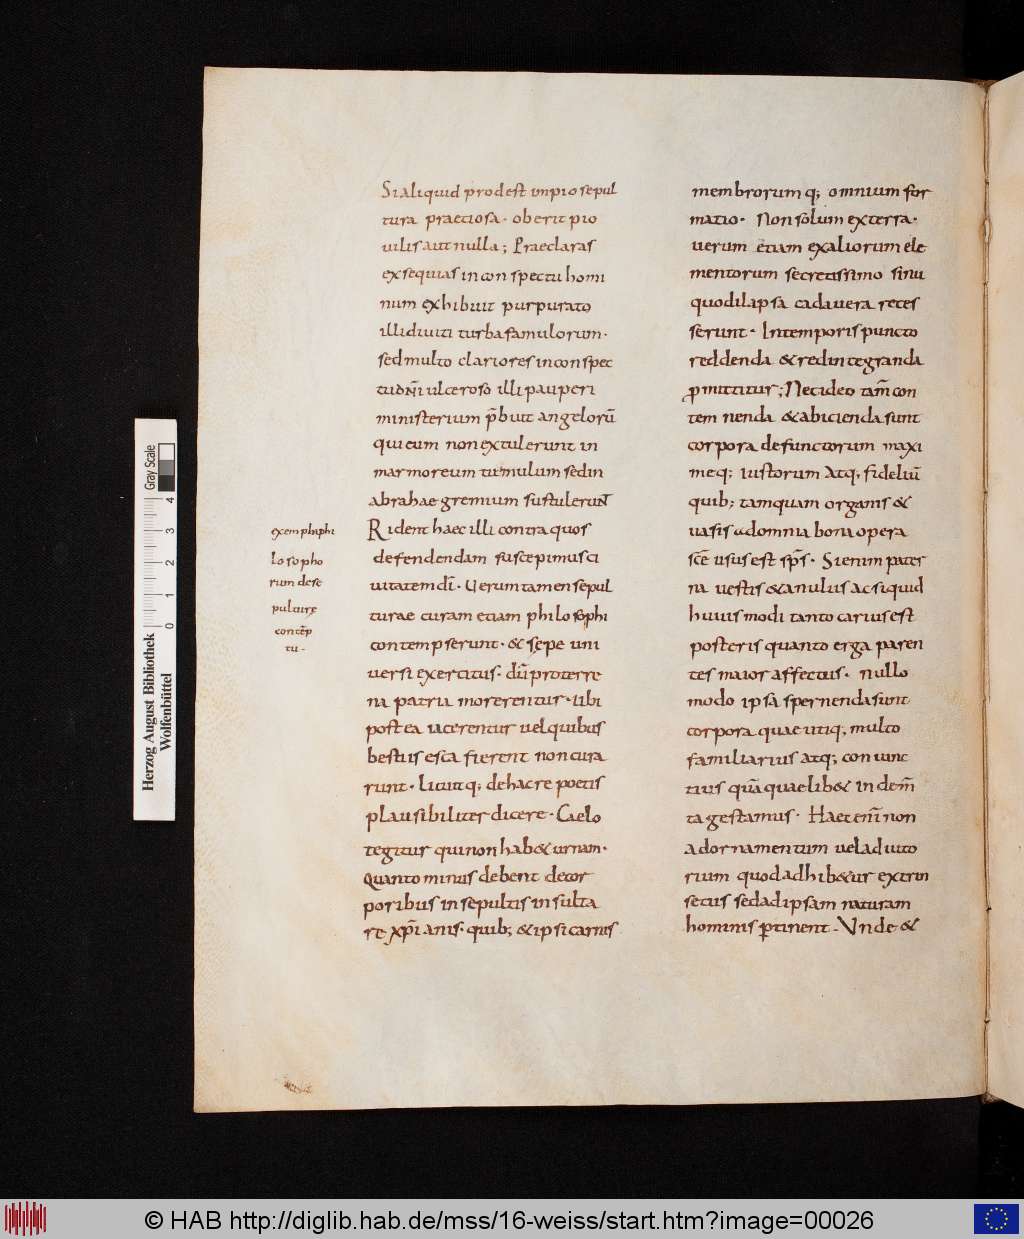 Si aliquid prodest impio sepul
tura praetiosa · oberit pio
uilis aut nulla ; Praeclaras
exsequias in conspectu homi
num exhibuit purpurato
illi diuiti turba famulorum ·
sed multo clariores in conspec
tu dn̄i ulceroso illi pauperi
ministerium p̄buit angelorū
qui eum non extulerunt in
marmoreum tumulum sed in
abrahae gremium sustulerunt
Rident haec illi contra quos
defendendam suscepimus ci
uitatem dī · Uerum tamen sepul
turae curam etiam philosophi
contempserunt · & sępe uni
uersi exercitus · dū pro terre
na patria morerentur · ubi
postea iacerent uel quibus
bestiis esca fierent non cura
runt · Licuitq; de hac re poetis
plausibiliter dicere · Caelo
tegitur qui non hab& urnam ·
Quanto minus debent de cor
poribus insepultis insulta
re xp̄ianis · quib; & ipsi carnis
exempl philo
losopho
rum de se
pulturę
contēp
tu -
membrorumq; omnium for
matio · Non solum ex terra ·
uerum etiam ex aliorum ele
mentorum secretissimo sinu
quo dilapsa cadauera reces
serunt · In temporis puncto
reddenda & redintegranda
ꝓmittitur ; Nec ideo tam̄ con
temnenda & abicienda sunt
corpora defunctorum maxi
meq; iustorum atq; fideliū
quib; tamquam organis &
uasis ad omnia bona opera
sc̄e usus est sp̄s · Si enim pater
na uestis & anulus ac siquid
huius modi tanto carius est
posteris quanto erga paren
tes maior affectus · nullo
modo ipsa spernenda sunt
corpora quae utiq; multo
familiarius atq; coniunc
tius quā quaelib& indem̄
ta gestamus · Haec enī non
ad ornamentum uel adiuto
rium quod adhib&ur extrin
secus sed ad ipsam naturam
hominis ꝑtinent · Unde &
Herzog August Bibliothek
Wolfenbüttel
0 1 2 3 4
Gray Scale
© HAB http://diglib.hab.de/mss/16-weiss/start.htm?image=00026